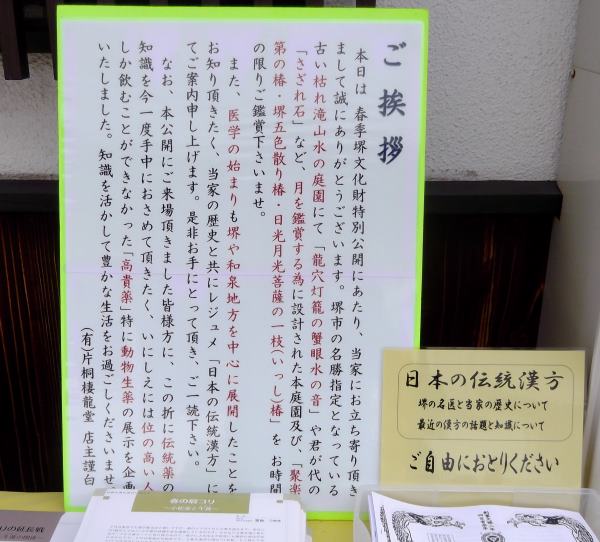 ご挨拶
本日は 春季堺文化財特別公開にあたり、当家にお立ち寄り頂き
まして誠にありがとうございます。堺市の名勝指定となっている
古い枯れ滝山水の庭園にて「龍穴灯籠の蟹眼水の音」や君が代の
「さざれ石」など、月を鑑賞する為に設計された本庭園及び、「聚楽
第の椿・堺五色散り椿・日光月光菩薩の一枝(いっし)椿」を お時間
の限りご鑑賞下さいませ。
また、医学の始まりも堺や和泉地方を中心に展開したことを
お知り頂きたく、当家の歴史と共にレジュメ「日本の伝統漢方」に
てご案内申し上げます。是非お手にとって頂き、ご一読下さい。
なお、本公開にご来場頂きました皆様方に、この折に伝統薬の
知識を今一度手中におさめて頂きたく、いにしえには位の高い人
しか飲むことができなかった「高貴薬」特に動物生薬の展示を企画
いたしました。知識を活かして豊かな生活をお過ごしくださいませ
(有)片桐棲龍堂 店主謹白
日本の伝統漢方
堺の名医と当家の歴史について
最近の漢方の話題と知識について
ご自由におとりください
春の肩コリ
りの延長戦